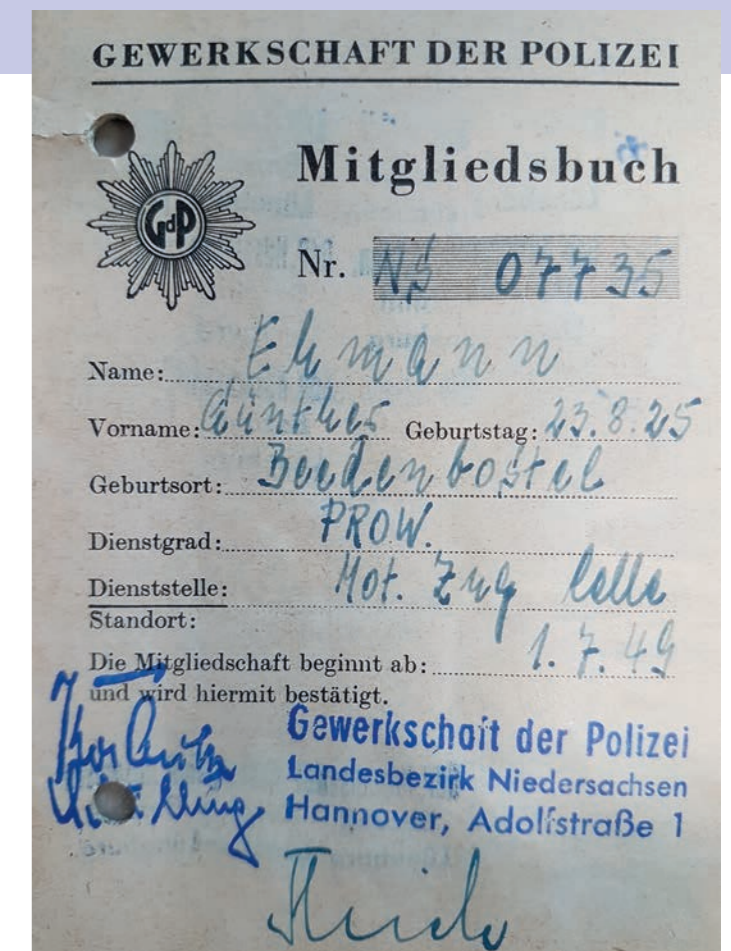 GEWERKSCHAFT DER POLIZEI
Mitgliedsbuch
GdP
Nr. NS 07735
Name: Ehmann
Vorname: Günther Geburtstag: 23.8.25
Geburtsort: Beedenbostel
Dienstgrad: PROW.
Dienststelle: Mot. Zug Celle
Standort:
Die Mitgliedschaft beginnt ab: 1.7.49
und wird hiermit bestätigt.
Gewerkschaft der Polizei
Landesbezirk Niedersachsen
Hannover, Adolfstraße 1